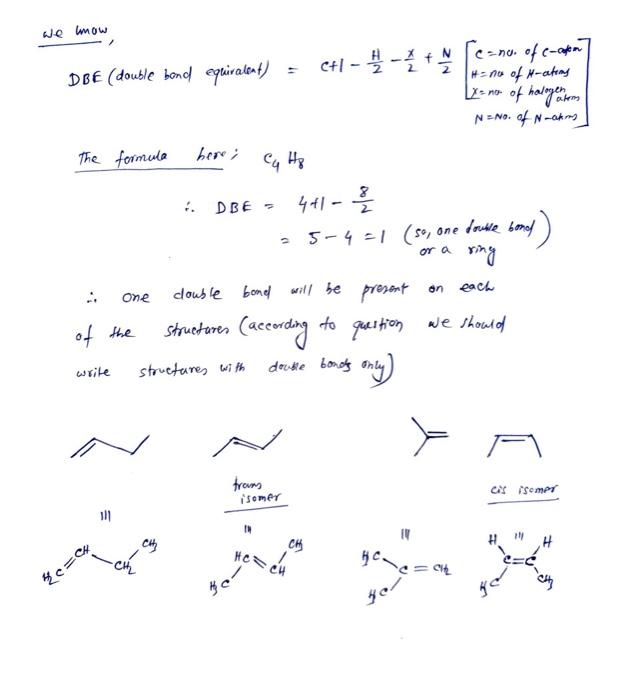 We know,
DBE (double bond equivalent) = C+1 - H/2 - X/2 + N/2 [C = no. of C-atom
H = no of H-atoms
X = no. of halogen atoms
N = No. of N-atoms]
The formula here; C4 H8
∴ DBE = 4+1 - 8/2
= 5 - 4 = 1 (so, one double bond
or a ring)
∴ one double bond will be present on each
of the structures (according to question we should
write structures with double bonds only)
trans
isomer
cis isomer
H2C CH CH2 CH3
H3C HC CH CH3
H3C H3C C = CH2
H H C=C H3C CH3